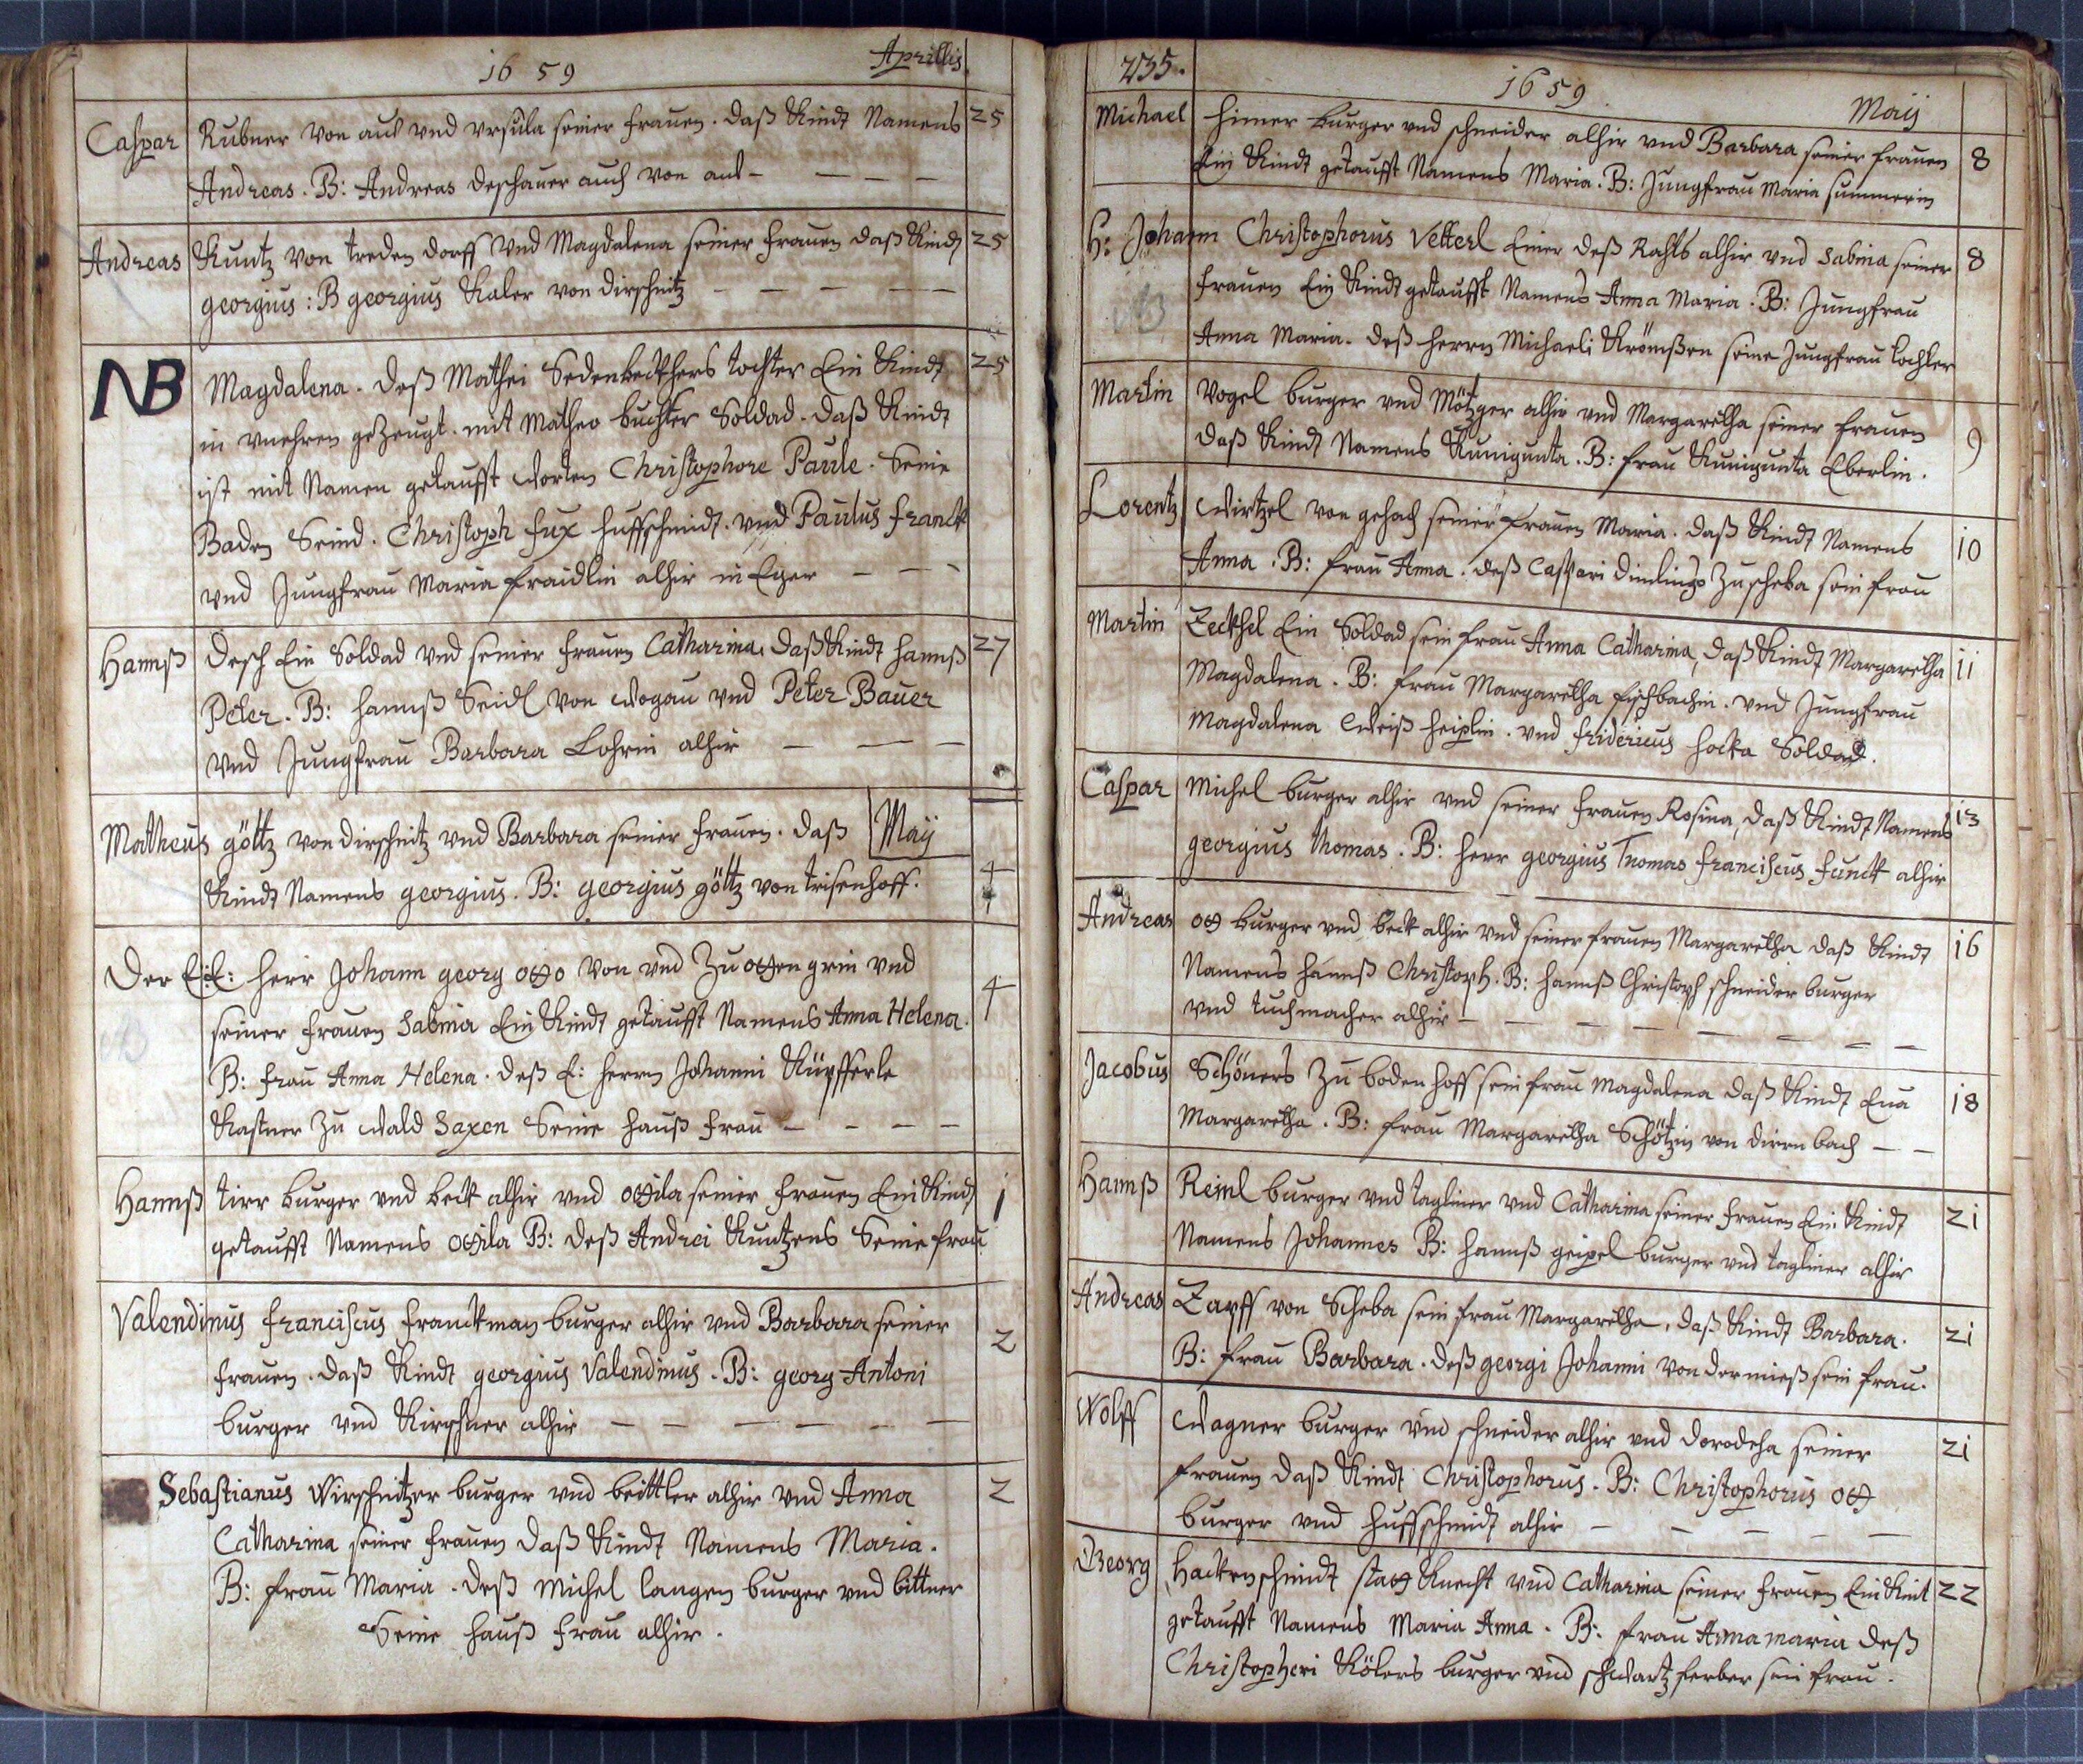 1659 Aprillis
Caspar Rubner von aul vnd vrsula seiner frauen. daß Kindt Namens 25
Andreas. B: Andreas deschauer auch von aul
Andreas Kuntz von treden dorff vnd Magdalena seiner frauen daß Kindt 25
georgius: B georgius Kaler von dirschnitz
NB Magdalena. deß Mathei Sedenbeckhers tochter Ein Kindt 25
in vnehren gezeugt. mit Matheo buchter Soldad. daß Kindt
ist mit Namen getaufft worten Christophore Paule. Seine
Baden Seind. Christoph fux huffschmidt. vnd Paulus franck
vnd Jungfrau Maria fraidlin alhir in Eger
Hannß desch Ein Soldad vnd seiner frauen Catharina. daß Kindt hannß 27
Peter. B: hannß Seidl von wogau vnd Peter Bauer
vnd Jungfrau Barbara Lohrin alhir
Matheus göltz von dirschnitz vnd Barbara seiner frauen. daß Maij
Kindt Namens georgius. B: georgius göltz von trisenhoff. 4
Der E: herr Johann georg otto von vnd zu otten grin vnd
seiner frauen Sabina Ein Kindt getaufft Namens Anna Helena. 4
B: frau Anna Helena. deß E: herrn Johanni Küpfferle
Kastner zu wald Saxen Seine hauß frau
Hannß tirr burger vnd beck alhir vnd ottila seiner frauen Ein Kindt 1
getaufft Namens ottila B: deß Andrei Kuntzens Seine frau
Valendinus franciscus franckman burger alhir vnd Barbara seiner
frauen. daß Kindt georgius Valendinus. B: georg Antoni 2
burger vnd Kirschner alhir
Sebastianus Wirschnitzer burger vnd beittler alhir vnd Anna 2
Catharina seiner frauen daß Kindt Namens Maria.
B: frau Maria. deß Michel langen burger vnd bittner
Seine hauß frau alhir.
235. 1659 Maij
Michael himer burger vnd schneider alhir vnd Barbara seiner frauen 8
Ein Kindt getaufft Namens Maria. B: Jungfrau Maria summerin
H: Johann Christophorus Vetterl Einer deß Rahts alhir vnd Sabina seiner 8
frauen Ein Kindt getaufft Namens Anna Maria. B: Jungfrau
Anna Maria. deß herrn Michaeli seine Jungfrau tochter
Martin Vogel burger vnd Mötzger alhir vnd Margaretha seiner frauen 9
daß Kindt Namens Kunigunta. B: frau Kunigunta Eberlin.
Lorentz Wirtzel von gehach seiner frauen Maria. daß Kindt Namens 10
Anna. B: frau Anna. deß Caspari dimlings zu scheba sein frau
Martin Zeckhel Ein Soldad sein frau Anna Catharina, daß Kindt Margaretha 11
Magdalena. B: frau Margaretha fischbachin. vnd Jungfrau
Magdalena Weiß heiplin. vnd fridericus hocka Soldad.
Caspar Michel burger alhir vnd seiner frauen Rosina, daß Kindt Namens 13
georgius Thomas. B: herr georgius Thomas franciscus funck alhir
Andreas ott burger vnd beck alhir vnd seiner frauen Margaretha daß Kindt 16
Namens hannß Christoph. B: hannß Christoph schneider burger
vnd tuchmacher alhir
Jacobus Schöners zu boden hoff sein frau Magdalena daß Kindt Eua 18
Margaretha. B: frau Margaretha Schötzin von dirrn bach
Hannß Reinl burger vnd taglner vnd Catharina seiner frauen Ein Kindt 21
Namens Johannes B: hannß geipel burger vnd taglner alhir
Andreas Zapff von Scheba sein frau Margaretha, daß Kindt Barbara. 21
B: frau Barbara. deß georgi Johanni von dermieß sein frau.
Wolff Wagner burger vnd schneider alhir vnd dorodeha seiner 21
frauen daß Kindt Christophorus. B: Christophorus ott
burger vnd huffschmidt alhir
Georg Hackenschmidt statt Knecht vnd Catharina seiner frauen Ein Kint 22
getaufft Namens Maria Anna. B: frau Anna maria deß
Christopheri Kölers burger vnd schwartz ferber sein frau.